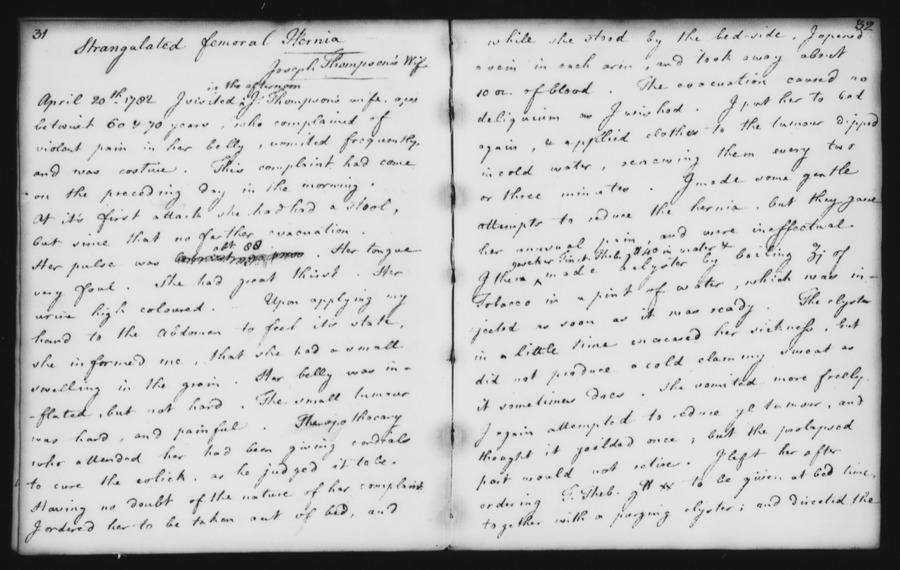 31
Strangulated femoral Hernia
Joseph Thompson's Wife
in the afternoon
April 20th 1782 I visited J: Thompson's wife, aged
betwixt 60 & 70 years, who complained of
violent pain in her belly, vomited frequently,
and was costive. This complaint had come
on the preceding day in the morning.
At it's first attack she had had a stool,
but since that no farther evacuation.
abt 88
Her pulse was . Her tongue
very foul. She had great thirst. Her
urine high coloured. Upon applying my
hand to the Abdomen to feel its state,
she informed me, that she had a small
swelling in the groin. Her belly was in-
-flated, but not hard. The small tumour
was hard, and painful. The apothecary
who attended her had been giving cordials
to cure the colick, as he judged it to be.
Having no doubt of the nature of her complaint
I ordered her to be taken out of bed, and
32
while she stood by the bed-side, I opened
a vein in each arm, and took away about
10 oz. of blood. The evacuation caused no
deliquium as I wished. I put her to bed
again, & applied clothes to the tumour dipped
in cold water, renewing them every two
or three minutes. I made some gentle
attempts to reduce the hernia, but they gave
her unusual pain, and were ineffectual.
gave her Tinct. Theb. gtt 40 in water &
I then made a clyster by boiling ʒj of
Tobacco in a pint of water, which was in-
jected as soon as it was ready. The clyster
in a little time increased her sickness, but
did not produce a cold clammy sweat as
it sometimes does. She vomited more freely.
I again attempted to reduce ye tumour, and
thought it yeilded once; but the prolapsed
part would not retire. I left her after
ordering T. Theb. gtt to be given at bed time,
together with a purging clyster; and directed the